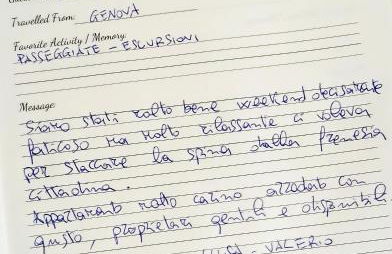 Travelled From: GENOVA
Favorite Activity / Memory:
PASSEGGIATE - ESCURSIONI
Message
Siamo stati molto bene weekend decisamente
faticoso ma molto rilassante ci voleva
per staccare la spina dalla frenesia
cittadina.
Appartamento molto carino arredato con
gusto, proprietari gentili e disponibili.
VALERIO